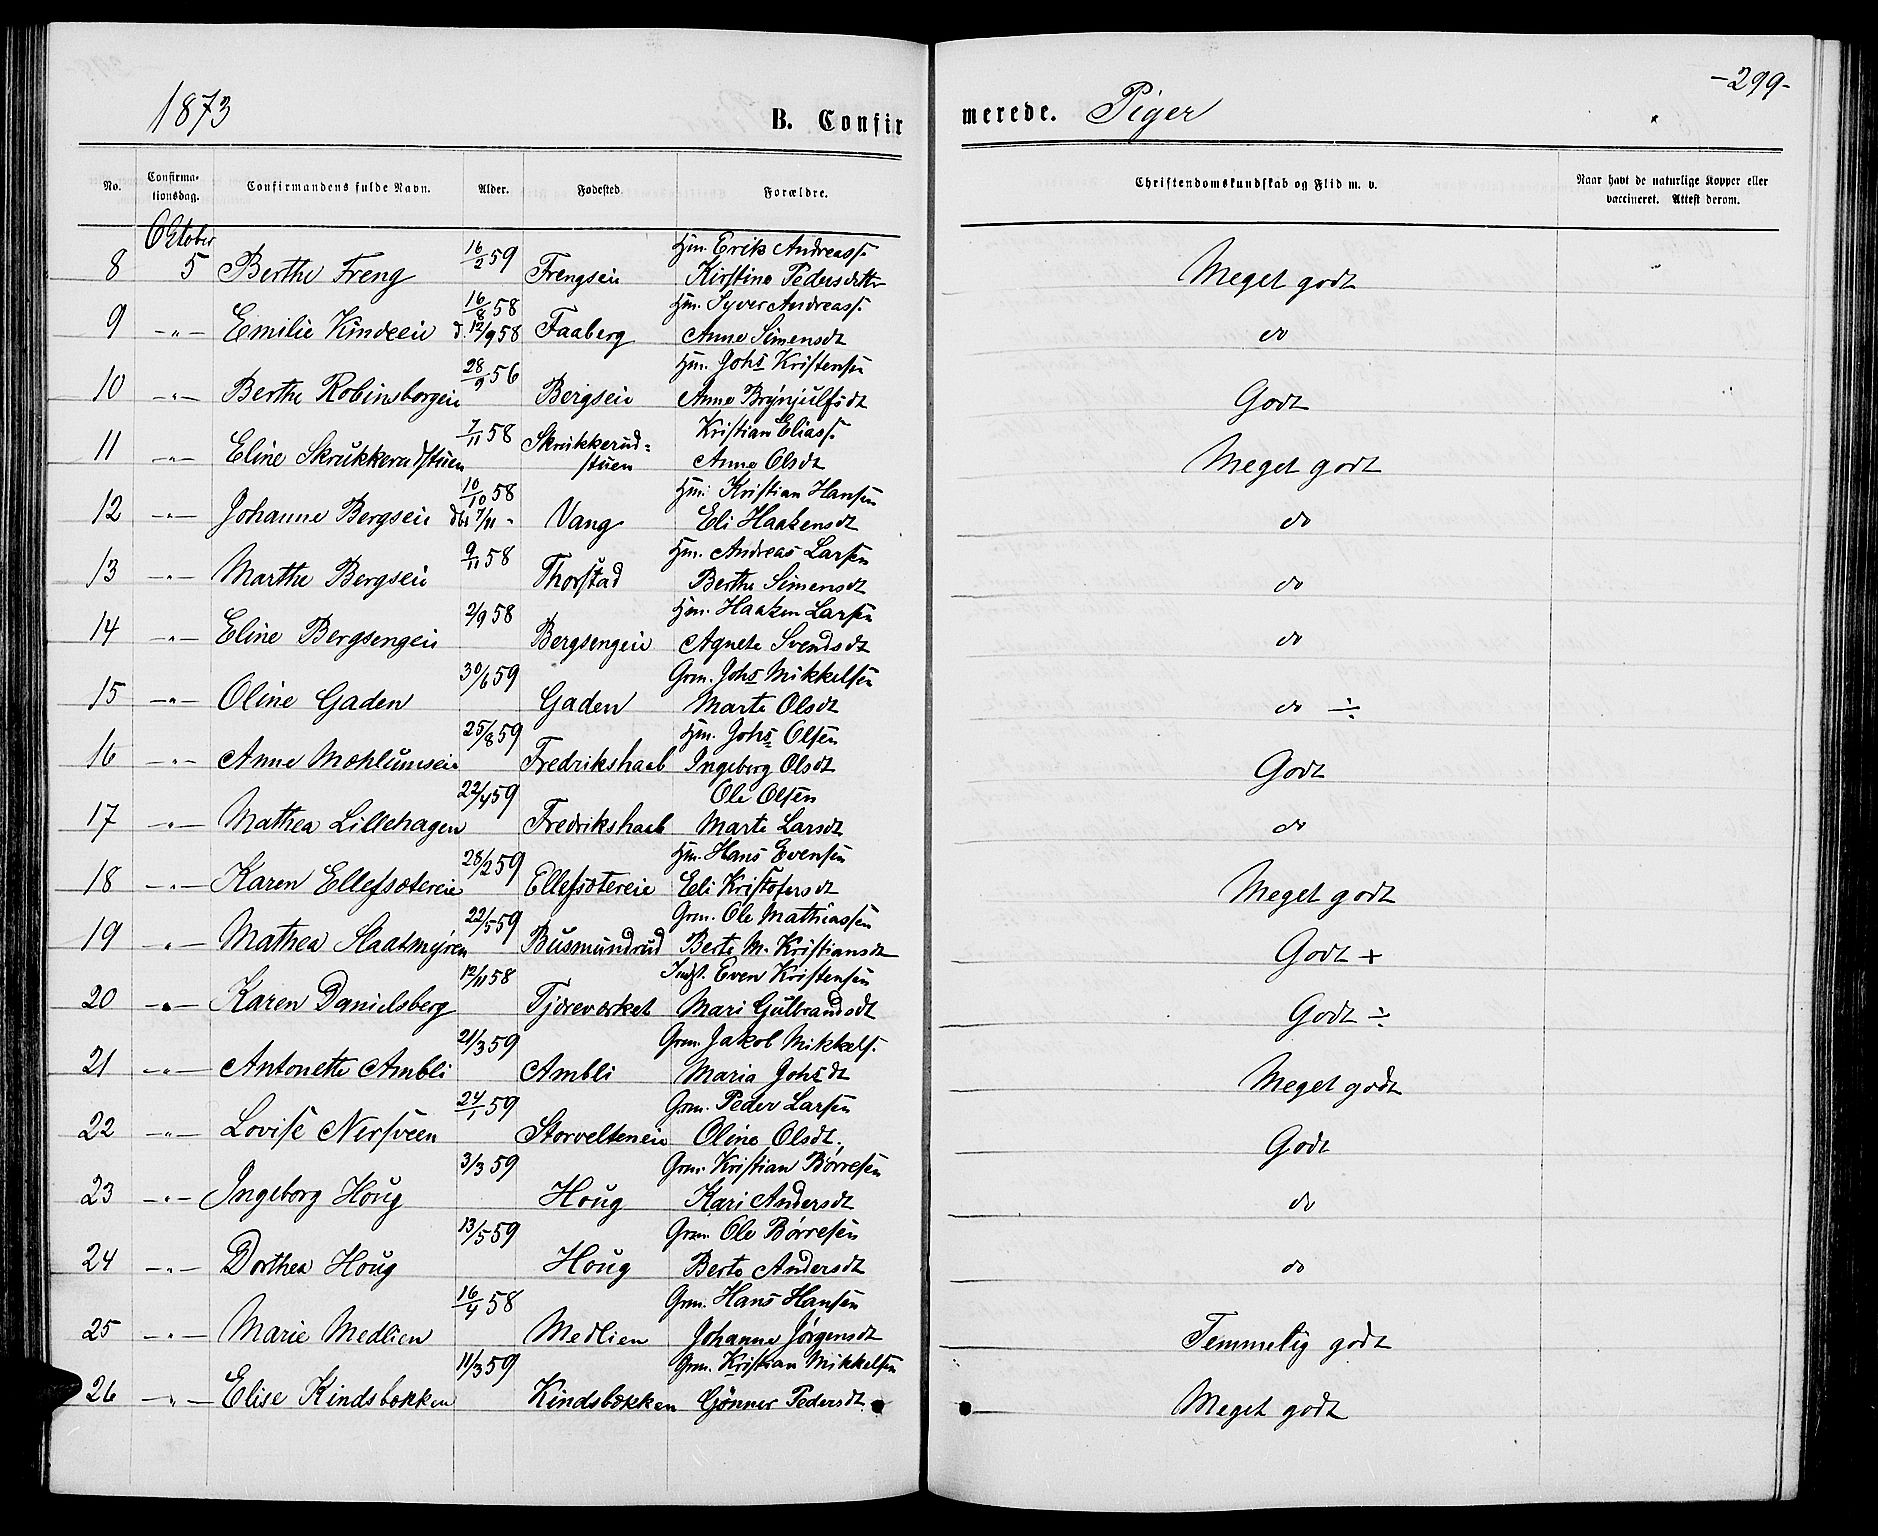 1873
B. Confir merede. Piger
-299-
No. Confirma-tionsdag. Confirmandens fulde Navn. Alder. Fødested. Forældre. Christendomskundskab og Flid m. v. Naar havt de naturlige Kopper eller vaccineret. Attest derom.
Oktober
16/2 59 Hm. Erik Andreass.
8 5 Berthe Freng Frengseie Kirstine Pedersdatter Meget godt
16/8 58 Hm. Syver Andreass.
9 -"- Emilie Kindeeie d. 12/9 58 Faaberg Anne Simensdt do
28/9 56 Hm. Johs Kristensen
10 -"- Berthe Robinsborgeie Bergseie Anne Brynjulfsdt Godt
7/11 58 Kristian Eliass.
11 -"- Eline Skrukkerudstuen Skrukkerud=stuen Anne Olsdt Meget godt
10/10 58 Hm. Kristian Hansen
12 -"- Johanne Bergseie dbt 7/11 - Vang Eli Haakensdt do
9/11 58 Hm. Andreas Larsen
13 -"- Marthe Bergseie Thorstad Berthe Simensdt do
2/9 58 Hm. Haaken Larsen
14 -"- Eline Bergsengeie Bergsengeie Agnete Svendsdt do
30/6 59 Grm. Johs Mikkelsen
15 -"- Oline Gaden Gaden Marte Olsdt do ÷
25/8 59 Hm. Johs Olsen
16 -"- Anne Mæhlumseie Fredrikshaab Ingeborg Olsdt Godt
22/4 59 Ole Olsen
17 -"- Mathea Lillehagen Fredrikshaab Marte Larsdt do
28/2 59 Hm. Hans Evensen
18 -"- Karen Ellefsætereie Ellefsætereie Eli Kristofersdt Meget godt
22/5 59 Grm. Ole Mathiassen
19 -"- Mathea Slaatmyren Busmundrud Berte M. Kristiansdt Godt +
12/11 58 Indst. Even Kristensen
20 -"- Karen Danielsberg Tjæreværket Mari Gulbrandsdt Godt ÷
21/3 59 Grm. Jakob Mikkels.
21 -"- Antonette Ambli Ambli Maria Johsdt Meget godt
24/1 59 Grm. Peder Larsen
22 -"- Lovise Nersveen Storvelteneie Oline Olsdt. Godt
3/3 59 Grm. Kristian Børresen
23 -"- Ingeborg Houg Houg Kari Andersdt do
13/5 59 Grm. Ole Børresen
24 -"- Dorthea Houg Houg Berte Andersdt do
16/4 58 Grm. Hans Hansen
25 -"- Marie Medlien Medlien Johanne Jørgensdt Temmelig godt
11/3 59 Grm. Kristian Mikkelsen
26 -"- Elise Kindsbækken Kindsbækken Gønner Pedersdt. Meget godt